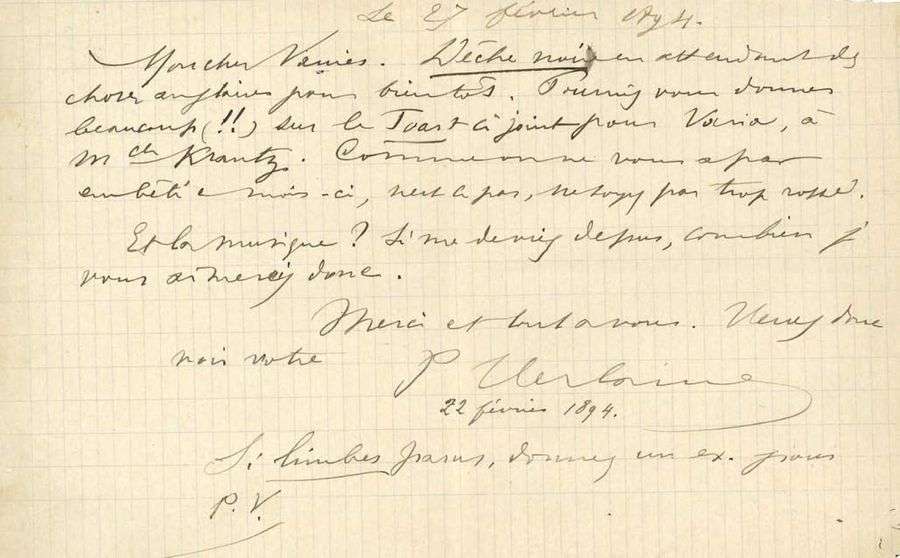 Le 27 février 1894.
Mon cher Vanier. Dèche noire en attendant des
choses anglaises pour bientôt. Pourriez vous donner
beaucoup (!!) sur le Toast ci joint pour Varia, à
Mlle Krantz. Comme on ne vous a pas
embêté e mois-ci, n'est ce pas, ne soyez pas trop rosse.
Et la musique ? Si me deviez depuis, combien j
vous aimerais donc.
Merci et tout à vous. Venez donc
voir votre
P Verlaine
22 février 1894.
Si limbes parus, donnez un ex. pour
P. V.